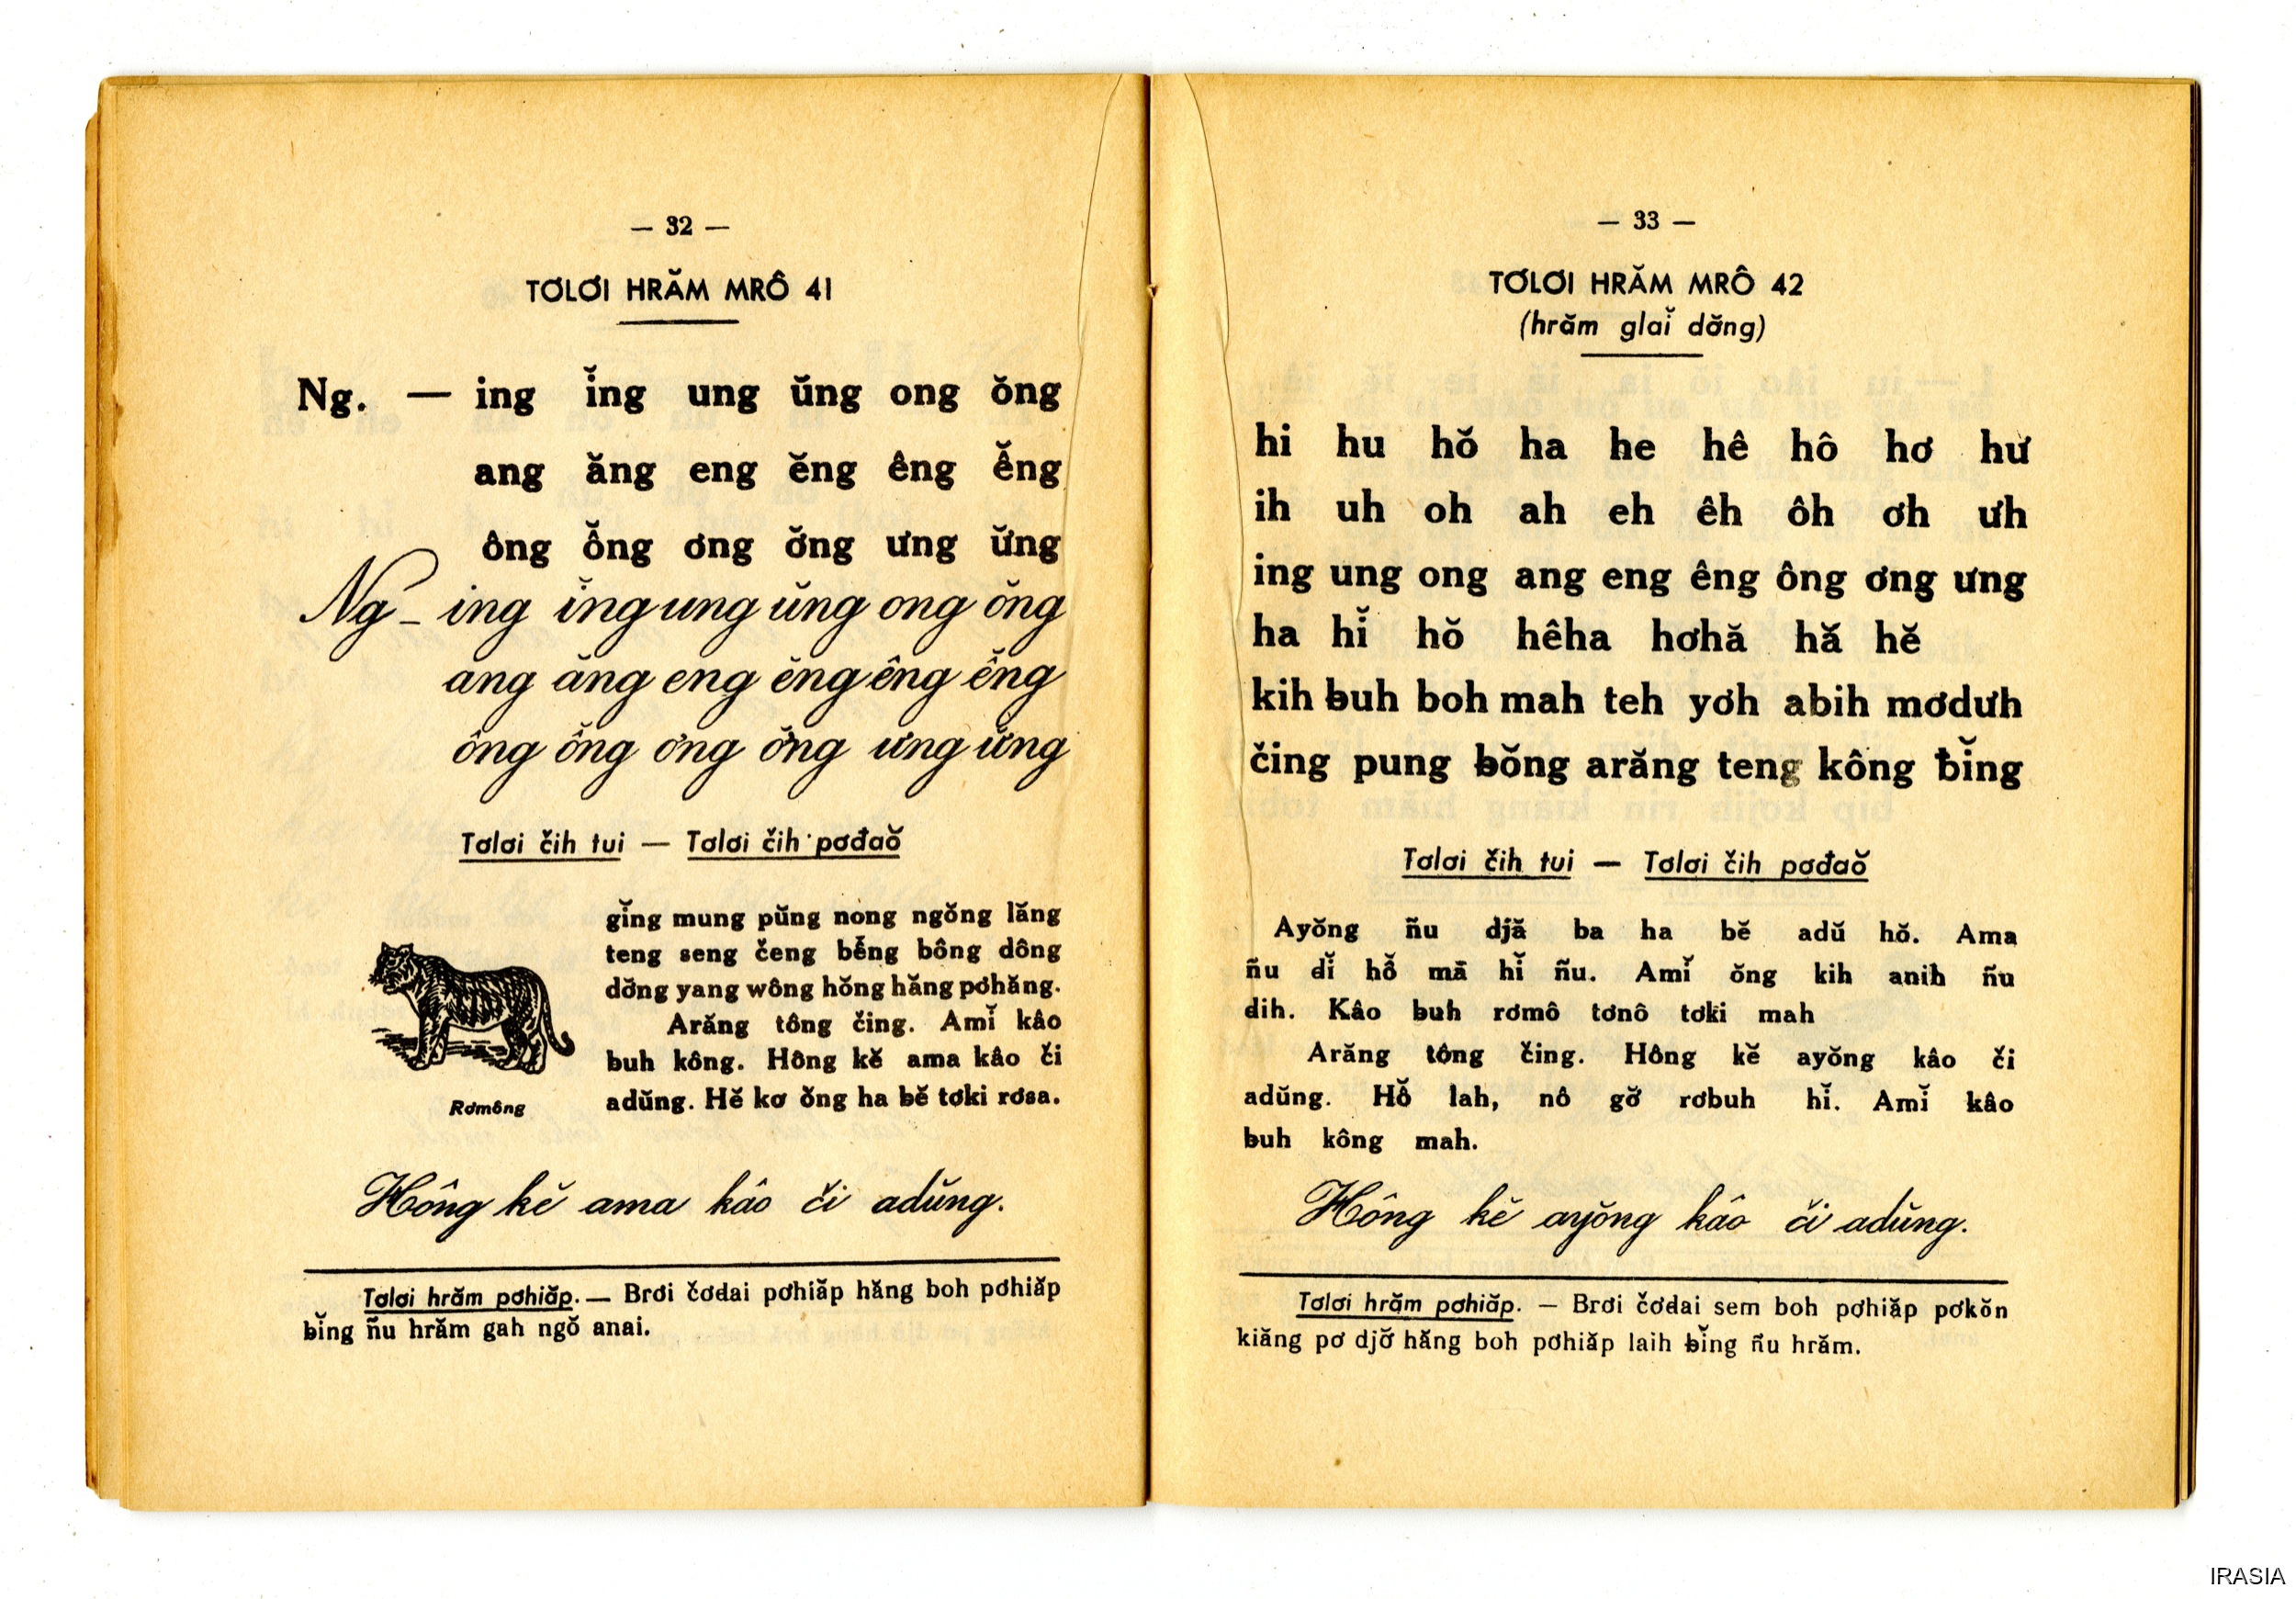 — 32 —
TƠLƠI HRĂM MRÔ 41
Ng. — ing ĭng ung ŭng ong ŏng
ang ăng eng ĕng êng ê̆ng
ông ô̆ng ơng ơ̆ng ưng ư̆ng
Ng – ing ĭng ung ŭng ong ŏng
ang ăng eng ĕng êng ê̆ng
ông ô̆ng ơng ơ̆ng ưng ư̆ng
Tơlơi čih tui — Tơlơi čih pơđaŏ
gĭng mung pŭng nong ngŏng lăng
teng seng čeng bê̆ng bông dông
dơ̆ng yang wông hŏng hăng pơhăng.
Arăng tông čing. Amĭ kâo
ƀuh kông. Hông kĕ ama kâo či
adŭng. Hĕ kơ ŏng ha ƀĕ tơki rơsa.
Rơmông
Hông kĕ ama kâo či adŭng.
Tơlơi hrăm pơhiăp. — Brơi čơdai pơhiăp hăng boh pơhiăp
ƀĭng ñu hrăm gah ngŏ anai.
— 33 —
TƠLƠI HRĂM MRÔ 42
(hrăm glaĭ dơ̆ng)
hi hu hŏ ha he hê hô hơ hư
ih uh oh ah eh êh ôh ơh ưh
ing ung ong ang eng êng ông ơng ưng
ha hĭ hŏ hêha hơhă hă hĕ
kih ƀuh boh mah teh yơh abih mơdưh
čing pung ƀŏng arăng teng kông ƀĭng
Tơlơi čih tui — Tơlơi čih pơđaŏ
Ayŏng ñu djă ba ha ƀĕ adŭ hŏ. Ama
ñu dĭ hô̆ mă hĭ ñu. Amĭ ŏng kih anih ñu
dih. Kâo ƀuh rơmô tơnô tơki mah
Arăng tông čing. Hông kĕ ayŏng kâo či
adŭng. Hô̆ lah, nô gơ̆ rơbuh hĭ. Amĭ kâo
ƀuh kông mah.
Hông kĕ ayŏng kâo či adŭng.
Tơlơi hrăm pơhiăp. — Brơi čơdai sem boh pơhiăp pơkŏn
kiăng pơ djơ̆ hăng boh pơhiăp laih ƀĭng ñu hrăm.
IRASIA